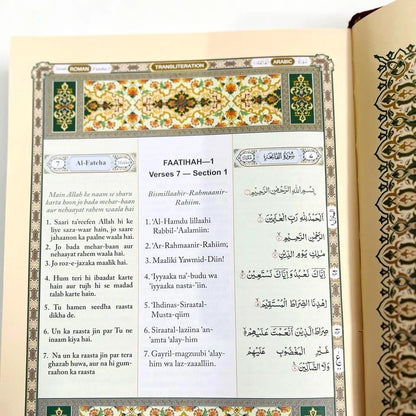 ROMAN
TRANSLITERATION
ARABIC
7
Al-Fateha
FAATIHAH—1
Verses 7 — Section 1
سُورَةُ الفَاتِحَة
Main Allah ke naam se sharu
karta hoon jo bada meher-baan
aur nehaayat rahem waala hai
1. Saari ta'reefen Allah hi ke
liye saza-waar hain, jo saare
jahaanon ka paalne waala hai.
2. Jo bada mehar-baan aur
nehaayat rahem waala hai.
3. Jo roz-e-jazaka maalik hai.
4. Hum teri hi ibaadat karte
hain aur tujh hi se madad
talab karte hain.
5. Tu hamen seedha raasta
dikha de.
6. Un ka raasta jin par Tu ne
inaam kiya hai.
7. Na un ka raasta jin par tera
ghazab huwa, aur na hi gum-
raahon ka raasta
Bismillaahir-Rahmaanir-
Rahiim.
1. 'Al-Hamdu lillaahi
Rabbil-'Aalamiin:
2. 'Ar-Rahmaanir-Rahiim;
3. Maaliki Yawmid-Diin!
4. 'Iyyaaka na'-budu wa
'iyyaaka nasta-'iin.
5. 'Ihdinas-Siraatal-
Musta-qiim
6. Siraatal-laziina 'an-
'amta 'alay-him
7. Gayril-magzuubi 'alay-
him wa laz-zaaalliin.
بِسْمِ اللهِ الرَّحْمٰنِ الرَّحِيْمِ
اَلْحَمْدُ لِلّٰهِ رَبِّ الْعٰلَمِيْنَ
الرَّحْمٰنِ الرَّحِيْمِ
مٰلِكِ يَوْمِ الدِّيْنِ
اِيَّاكَ نَعْبُدُ وَاِيَّاكَ نَسْتَعِيْنُ
اِهْدِنَا الصِّرَاطَ الْمُسْتَقِيْمَ
صِرَاطَ الَّذِيْنَ اَنْعَمْتَ عَلَيْهِمْ
غَيْرِ الْمَغْضُوْبِ عَلَيْهِمْ
وَلَا الضَّآلِّيْنَ